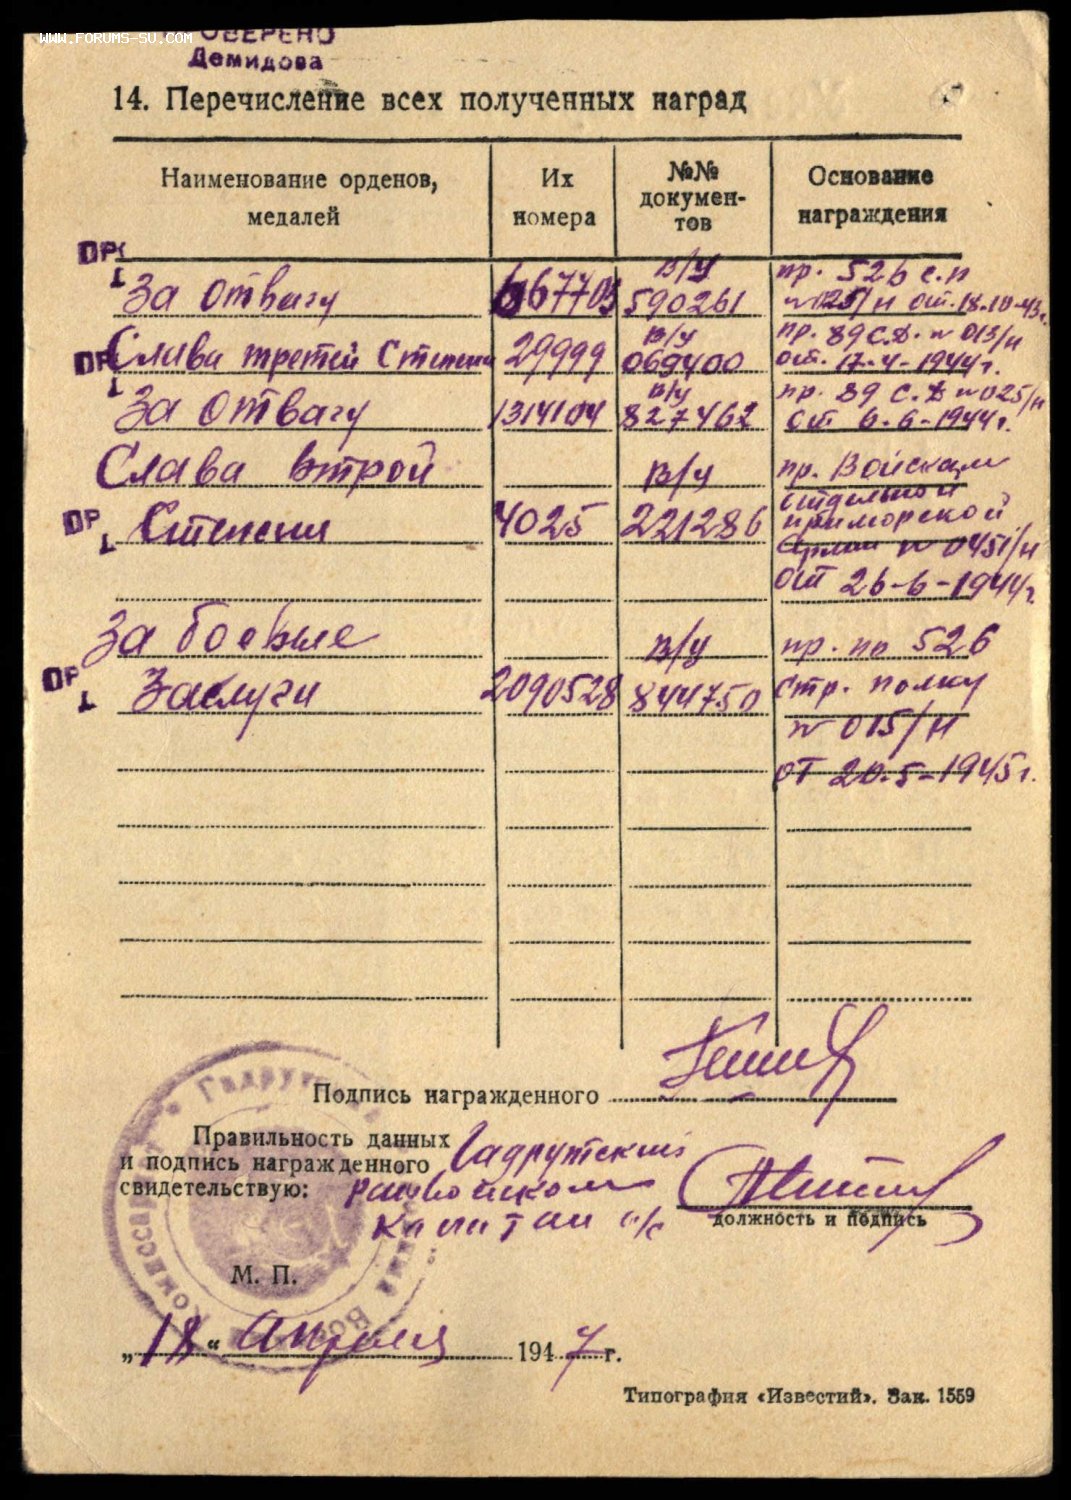 WWW.FORUMS-SU.COM
ОВЕРЕНО
Демидова
14. Перечисление всех полученных наград
Наименование орденов, медалей
Их номера
№№ документов
Основание награждения
ОР
1
За отвагу 667703 в/у 590261 пр. 526 с.п
№ 025/н от 18-10-43г.
ОР
1
Слава третей Степени 29999 в/у 069400 пр. 89 с.д. № 013/н
от. 17-4-1944г.
За отвагу 1314104 в/у 827462 пр. 89 с.д №025/н
от 6-6-1944г.
Слава втрой в/у пр. Войскам
отдельной
ОР
1
Степени 4025 221286 приморской
Армии № 0451/н
от 26-6-1944г.
За боевые в/у пр. по 526
ОР
1
Заслуги 2090528 844750 стр. полку
№ 015/н
от 20-5-1945г.
Подпись награжденного
Правильность данных
и подпись награжденного
свидетельствую:
Гадрутский
райвойском
капитан а/с
должность и подпись
М. П.
„18“ Апреля 1947 г.
Типография «Известий». Зак. 1559